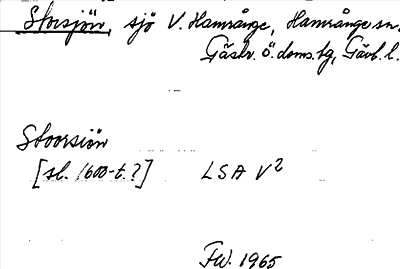 Storsjön, sjö V. Hamrånge, Hamrånge sn.
Gästr. Ö. doms.tg, Gävl. l.
Stoorsiön
[sl. 1600-t.?] LSA V2
FW. 1965